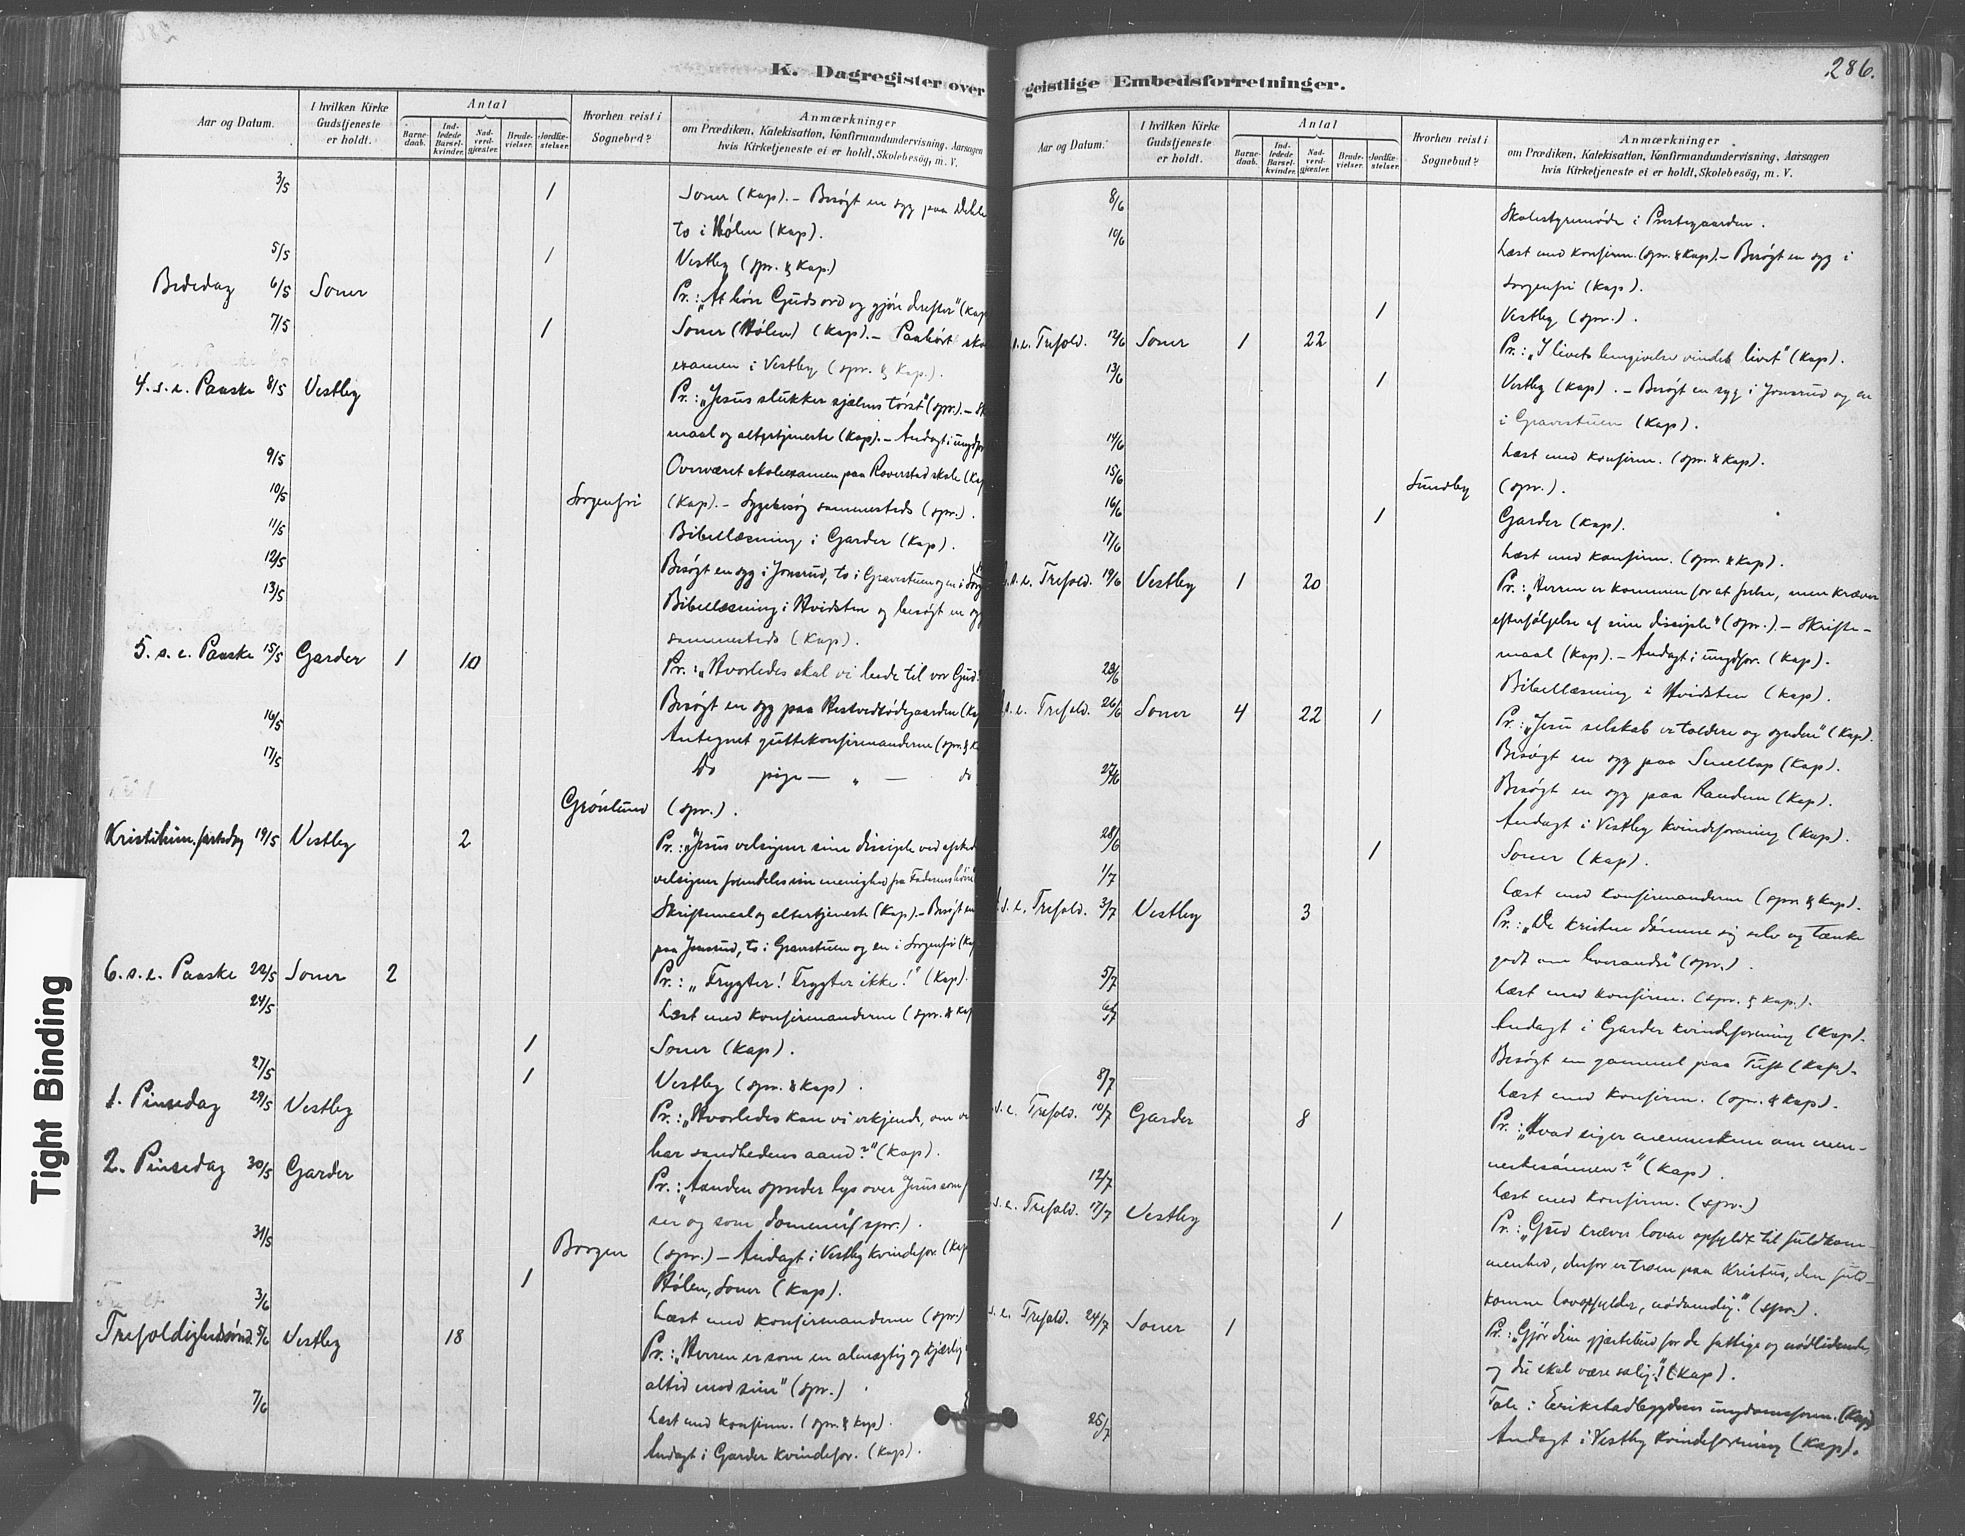 286.
K. Dagregister over geistlige Embedsforretninger.
Aar og Datum. I hvilken Kirke Gudstjeneste er holdt. Antal Barnedaab. Indledede Barselkvinder. Nadverdgjæster. Brudevielser. Jordfæstelser. Hvorhen reist i Sognebud? Anmærkninger om Prædiken, Katekisation, Konfirmandundervisning, Aarsagen hvis Kirketjeneste ei er holdt, Skolebesøg, m. V.
3/5 1 Soner (Kap). – Besøgt en syg paa
to i Hølen (Kap).
5/5 1 Vestby (spr. & Kap)
Bededag 6/5 Soner Pr.: „At høre Guds ord og gjøre derefter" (Kap
7/5 1 Soner (Hølen) (Kap). – Paahørt
examen i Vestby (spr. & Kap).
4. s. e. Paaske 8/5 Vestby Pr.: „Jesus slukker sjælens tørst" (spr.). –
maal og altertjeneste (Kap). – Andagt i
9/5 Overværet skoleexamen paa Roverstad skole (Kap
10/5 Sorgenfri (Kap). – Sygebesøg sammesteds (spr.).
11/5 Bibellæsning i Garder (Kap).
12/5 Besøgt en syg i Jonsrud, to i Gravestuen og en i
13/5 Bibellæsning i Hvidsten og besøgt en
sammesteds (Kap).
5. s. e. Paaske 15/5 Garder 1 10 Pr.: „Hvorledes skal vi bede til vor Gud?
Besøgt en syg paa (Kap
16/5 Antegnet guttekonfirmanderne (spr. & K
17/5 do pige – „ – do
Grönlund (spr.).
Kristi him. fartsdag 19/5 Vestby 2 Pr.: „Jesus velsigner sine disciple ved
velsigner sin menighed fra Faderens høire"
Skriftemaal og altertjeneste (Kap). – Besøgt en
paa Jonsrud, to i Gravestuen og en i Sorgenfri (Kap
6. s. e. Paaske 22/5 Soner 2 Pr.: „Frygter! Frygter ikke!" (Kap).
24/5 Læst med konfirmanderne (spr. & Kap
1 Soner (Kap).
27/5 1 Vestby (spr. & Kap).
1. Pinsedag 29/5 Vestby Pr.: „Hvorledes kan vi erkjende, om vi
har sandhedens aand?" (Kap).
2. Pinsedag 30/5 Garder Pr.: „Aanden spreder lys over Jesus som
ser og som dommen" (spr.).
31/5 Borgen (spr.) – Andagt i Vestby kvindefor. (Kap
1 Hølen, Soner (Kap).
3/6 Læst med konfirmanderne (spr)
Trefoldighedssønd. 5/6 Vestby 18 Pr.: „Herren er som en almægtig og kjærlig
altid mod sine" (spr.)
7/6 Læst med konfirm. (spr. & Kap).
Andagt i Garder kvindefor. (Kap).
Aar og Datum. I hvilken Kirke Gudstjeneste er holdt. Antal Barnedaab. Indledede Barselkvinder. Nadverdgjæster. Brudevielser. Jordfæstelser. Hvorhen reist i Sognebud? Anmærkninger om Prædiken, Katekisation, Konfirmandundervisning, Aarsagen hvis Kirketjeneste ei er holdt, Skolebesøg, m. V.
8/6 Skolestyremøde i Prestegaarden.
10/6 Læst med konfirm. (spr. & Kap). – Besøgt en syg i
Sorgenfri (Kap).
1 Vestby (spr.).
s. e. Trefold. 12/6 Soner 1 22 Pr.: „I livets hengivelse vindes livet" (Kap).
13/6 1 Vestby (Kap). – Besøgt en syg i Jonsrud og en
i Gravestuen (Kap).
14/6 Læst med konfirm. (spr. & Kap).
15/6 Sundby (spr.).
16/6 1 Garder (Kap).
17/6 Læst med konfirm. (spr. & Kap).
s. e. Trefold. 19/6 Vestby 1 20 Pr.: „Herren er kommen for at frelse, men kræver
efterfølgelse af sine disciple" (spr.). – Skrifte-
maal (Kap). – Andagt i ungdfor. (Kap).
23/6 Bibellæsning i Hvidsten (Kap).
s. e. Trefold. 26/6 Soner 4 22 1 Pr.: „Jesu selskab er toldere og syndere" (Kap).
Besøgt en syg paa (Kap).
27/6 Besøgt en syg paa Randem (Kap).
Andagt i Vestby kvindeforening (Kap).
28/6 1 Soner (Kap).
1/7 Læst med konfirmanderne (spr. & Kap).
s. e. Trefold. 3/7 Vestby 3 Pr.: „De kristne dømme sig selv og tænke
godt om hverandre" (spr.).
5/7 Læst med konfirm. (spr. & Kap.).
Andagt i Garder kvindeforening (Kap).
Besøgt en gammel paa Tuft (Kap).
8/7 Læst med konfirm. (spr. & Kap).
s. e. Trefold. 10/7 Garder 8 Pr.: „Hvad siger menneskene om men-
neskesønnen?" (Kap).
12/7 Læst med konfirm. (spr.)
s. e. Trefold. 17/7 Vestby 1 Pr.: „Gud kræver loven opfyldt til fuldkom-
menhed, derfor er troen paa Kristus, den fuld-
komne lovopfylder, nødvendig." (spr.).
s. e. Trefold. 24/7 Soner 1 Pr.: „Gjør dine gjæstebud for de fattige og nødlidende,
og du skal være salig!" (Kap).
Tale i Erikstadbygdens ungdomsforen. (Kap)
25/7 Andagt i Vestby kvindeforening (Kap).
Tight Binding